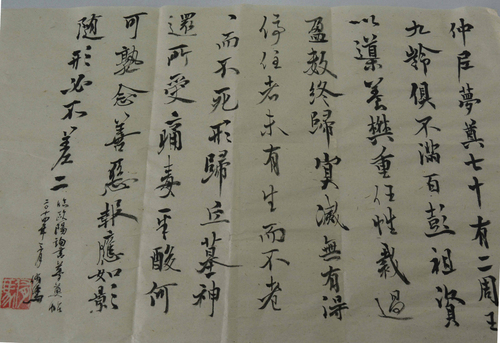 仲尼夢奠七十有二周王
九齡俱不滿百彭祖資
以導養樊重任性裁過
盈數終歸冥滅無有得
停住者未有生而不老
、而不死形歸丘墓神
還所受痛毒辛酸何
可熟念善惡報應如影
隨形必不差二
臨歐陽詢書夢奠帖
二〇一四年月